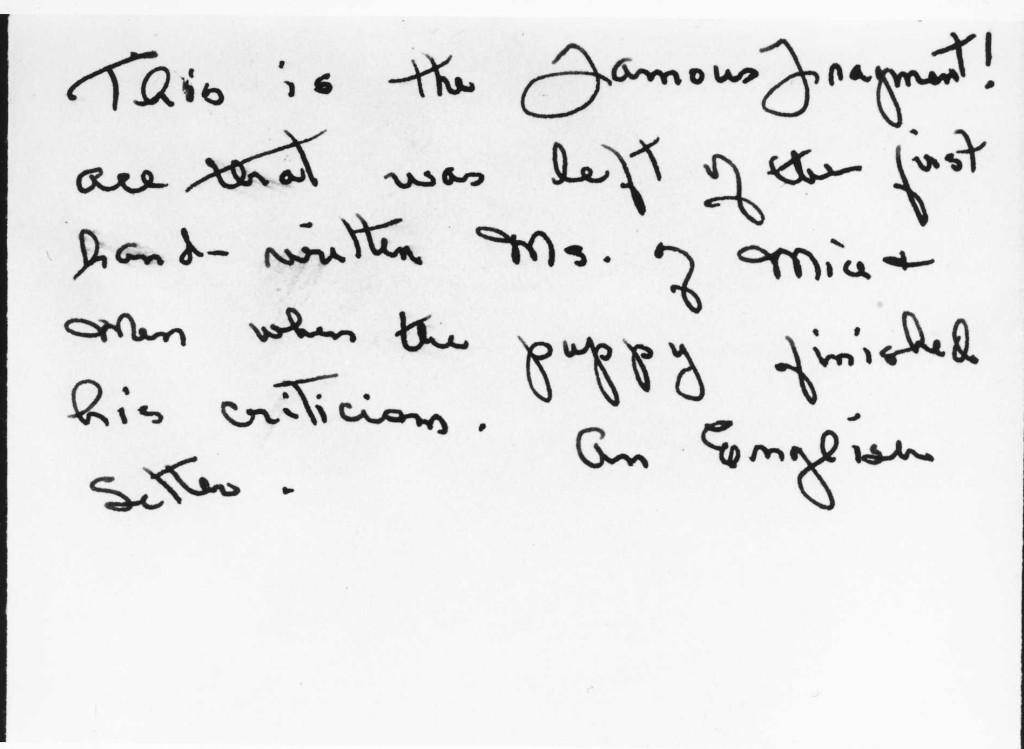 This is the Famous Fragment!
all that was left of the first
hand-written Ms. of Mice +
Men when the puppy finished
his criticism. An English
Setter.